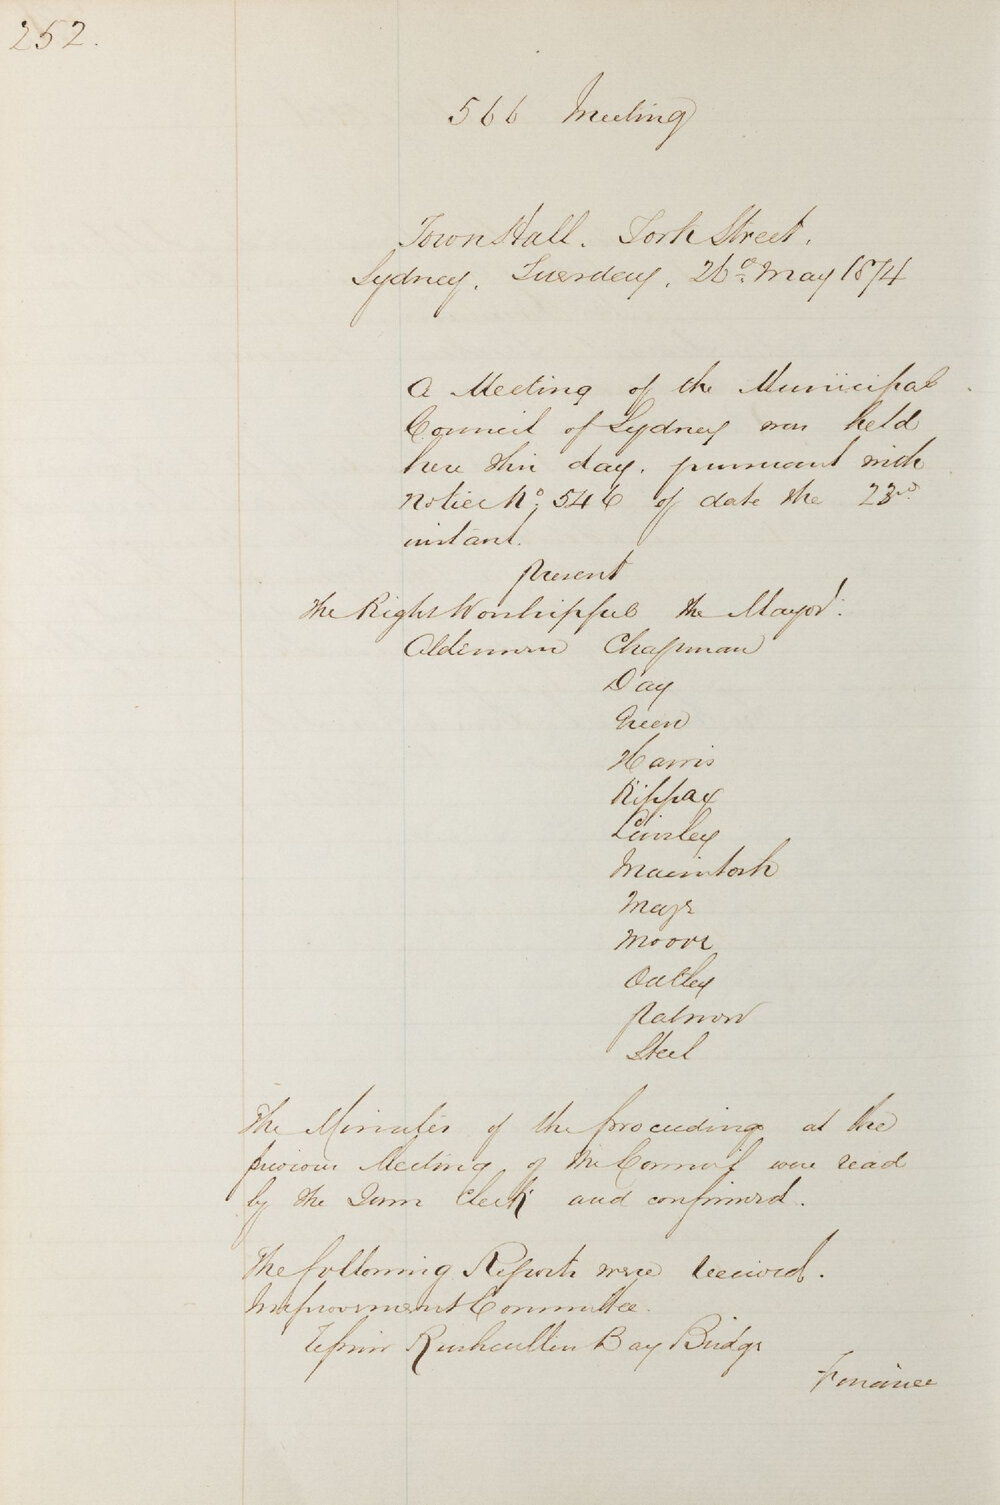 252.
566 Meeting
Town Hall. York Street.
Sydney. Tuesday. 26th May 1874
A Meeting of the Municipal
Council of Sydney was held
here this day. pursuant with
notice No. 546 of date the 23rd
instant.
present
The Right Worshipful the Mayor.
Aldermen Chapman
Day
Green
Harris
Kippax
Linsley
Macintosh
Mayr
Moore
Oatley
Palmer
Steel
The Minutes of the proceeding at the
previous Meeting of the Council were read
by the Town Clerk and confirmed.
The following Reports were received.
Improvement Committee.
Rushcutters Bay Bridge
Finance